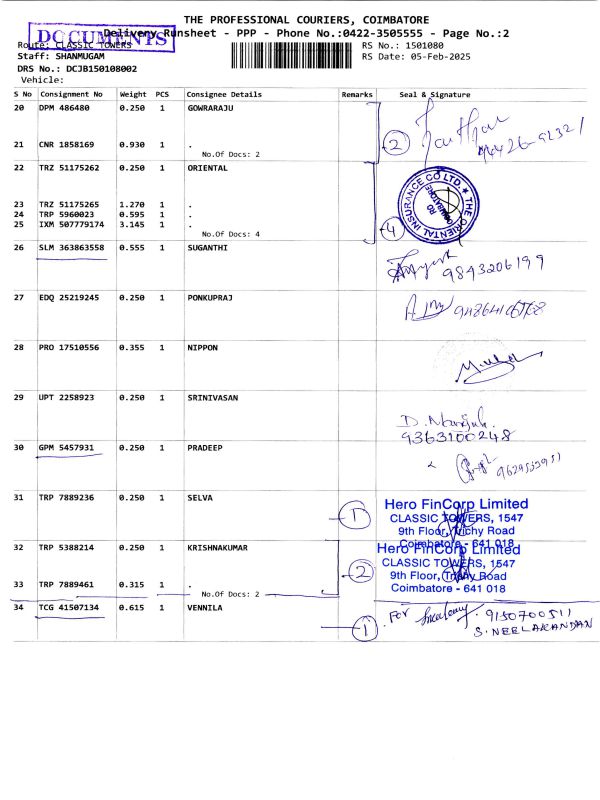 THE PROFESSIONAL COURIERS, COIMBATORE
DOCUMENTS
Delivery Runsheet - PPP - Phone No.:0422-3505555 - Page No.:2
Route: CLASSIC TOWERS RS No.: 1501080
Staff: SHANMUGAM RS Date: 05-Feb-2025
DRS No.: DCJB150108002
Vehicle:
S No Consignment No Weight PCS Consignee Details Remarks Seal & Signature
20 DPM 486480 0.250 1 GOWRARAJU
21 CNR 1858169 0.930 1 . 2
No.Of Docs: 2
22 TRZ 51175262 0.250 1 ORIENTAL
THE ORIENTAL INSURANCE CO LTD.
23 TRZ 51175265 1.270 1 .
24 TRP 5960023 0.595 1 .
25 IXM 507779174 3.145 1 .
No.Of Docs: 4 4
26 SLM 363863558 0.555 1 SUGANTHI
9843206199
27 EDQ 25219245 0.250 1 PONKUPRAJ
28 PRO 17510556 0.355 1 NIPPON
29 UPT 2258923 0.250 1 SRINIVASAN
9363100248
30 GPM 5457931 0.250 1 PRADEEP
31 TRP 7889236 0.250 1 SELVA 1
Hero FinCorp Limited
CLASSIC TOWERS, 1547
9th Floor, Trichy Road
Coimbatore - 641 018
32 TRP 5388214 0.250 1 KRISHNAKUMAR
Hero FinCorp Limited
CLASSIC TOWERS, 1547
9th Floor, Trichy Road
Coimbatore - 641 018
33 TRP 7889461 0.315 1 . 2
No.Of Docs: 2
34 TCG 41507134 0.615 1 VENNILA 1
FOR 9150700511
S. NEELAKANDAN